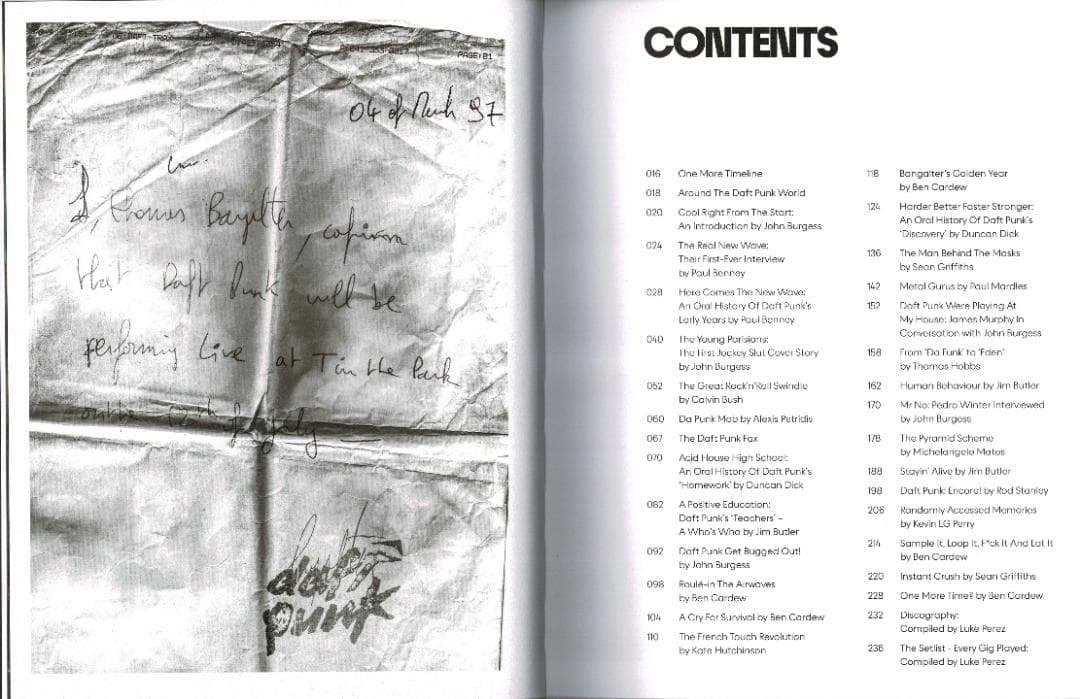 PAGE:01
04 of March 97
I, Thomas Bangalter, confirm
that Daft Punk will be
performing Live at T in the Park
on the 12th of July
daft
punk
CONTENTS
016 One More Timeline
018 Around The Daft Punk World
020 Cool Right From The Start:
An Introduction by John Burgess
024 The Real New Wave:
Their First-Ever Interview
by Paul Benney
028 Here Comes The New Wave:
An Oral History Of Daft Punk's
Early Years by Paul Benney
040 The Young Parisians:
The First Jockey Slut Cover Story
by John Burgess
052 The Great Rock'n'Roll Swindle
by Calvin Bush
060 Da Punk Mob by Alexis Petridis
067 The Daft Punk Fax
070 Acid House High School:
An Oral History Of Daft Punk's
'Homework' by Duncan Dick
082 A Positive Education:
Daft Punk's 'Teachers' –
A Who's Who by Jim Butler
092 Daft Punk Get Bugged Out!
by John Burgess
098 Roulé-in The Airwaves
by Ben Cardew
104 A Cry For Survival by Ben Cardew
110 The French Touch Revolution
by Kate Hutchinson
118 Bangalter's Golden Year
by Ben Cardew
124 Harder Better Faster Stronger:
An Oral History Of Daft Punk's
'Discovery' by Duncan Dick
136 The Man Behind The Masks
by Sean Griffiths
142 Metal Gurus by Paul Mardles
152 Daft Punk Were Playing At
My House: James Murphy In
Conversation with John Burgess
158 From 'Da Funk' to 'Eden'
by Thomas Hobbs
162 Human Behaviour by Jim Butler
170 Mr No: Pedro Winter Interviewed
by John Burgess
178 The Pyramid Scheme
by Michelangelo Matos
188 Stayin' Alive by Jim Butler
198 Daft Punk: Encore! by Rod Stanley
206 Randomly Accessed Memories
by Kevin EG Perry
214 Sample It, Loop It, F*ck It And Eat It
by Ben Cardew
220 Instant Crush by Sean Griffiths
228 One More Time? by Ben Cardew
232 Discography:
Compiled by Luke Perez
236 The Setlist - Every Gig Played:
Compiled by Luke Perez